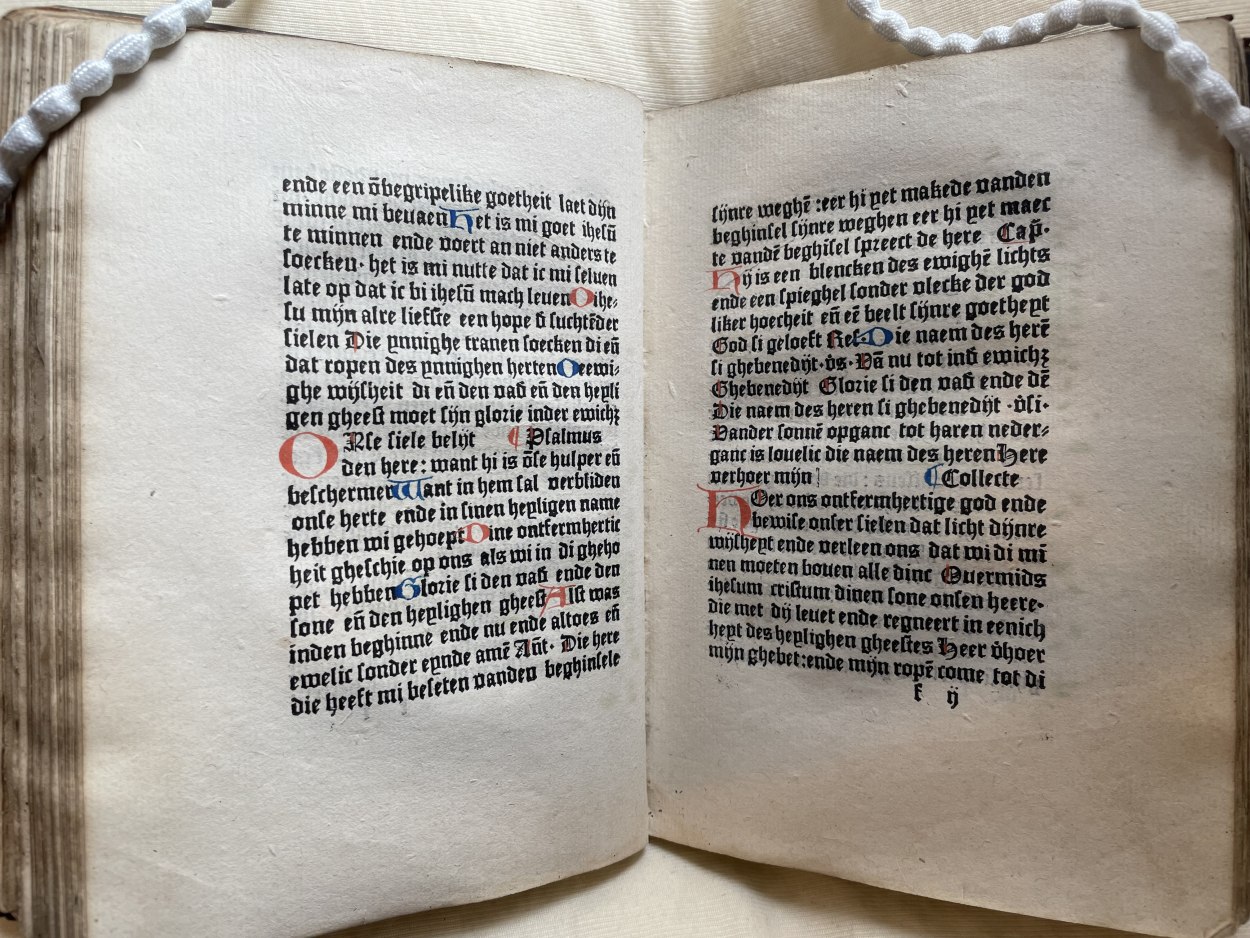 ende een ōbegripelike goetheit laet dijn
minne mi beuaen Het is mi goet ihesū
te minnen ende voert an niet anders te
soecken· het is mi nutte dat ic mi seluen
late op dat ic bi ihesū mach leuen O ihe⸗
su mijn alre liefste een hope d̄ suchtēder
sielen Die ynnighe tranen soecken di eñ
dat ropen des ynnighen herten O eewi⸗
ghe wijsheit di eñ den vad̄ eñ den heyli
gen gheest moet sijn glorie inder ewichꝫ
ONse siele belijt ¶ Psalmus
den here : want hi is ōse hulper eñ
beschermer Want in hem sal verbliden
onse herte ende in sinen heyligen name
hebben wi gehoept Dine ontfermhertic
heit gheschie op ons als wi in di gheho
pet hebben Glorie si den vad̄ ende den
sone eñ den heylighen gheest Alst was
inden beghinne ende nu ende altoes eñ
ewelic sonder eynde amē Añt· Die here
die heeft mi beseten vanden beghinsele
sijnre weghē :eer hi yet makede vanden
beghinsel sijnre weghen eer hi yet maec
te vandē beghīsel spreect de here Cap̄·
Hij is een blencken des ewighē lichts
ende een spieghel sonder vlecke der god
liker hoecheit eñ eē beelt sijnre goetheyt
God si geloeft Res· Die naem des herē
si ghebenedijt·v̄s· Vā nu tot ind̄ ewichꝫ
Ghebenedijt Glorie si den vad̄ ende dē
Die naem des heren si ghebenedijt ·v̄si·
Vander sonnē opganc tot haren neder⸗
ganc is louelic die naem des heren Here
verhoer mijn ¶ Collecte
HOer ons ontfermhertige god ende
bewise onser sielen dat licht dijnre
wijsheyt ende verleen ons dat wi di mī
nen moeten bouen alle dinc Ouermids
ihesum cristum dinen sone onsen heere·
die met dij leuet ende regneert in eenich
heyt des heylighen gheestes Heer v̄hoer
mijn ghebet:ende mijn ropē come tot di
k ij